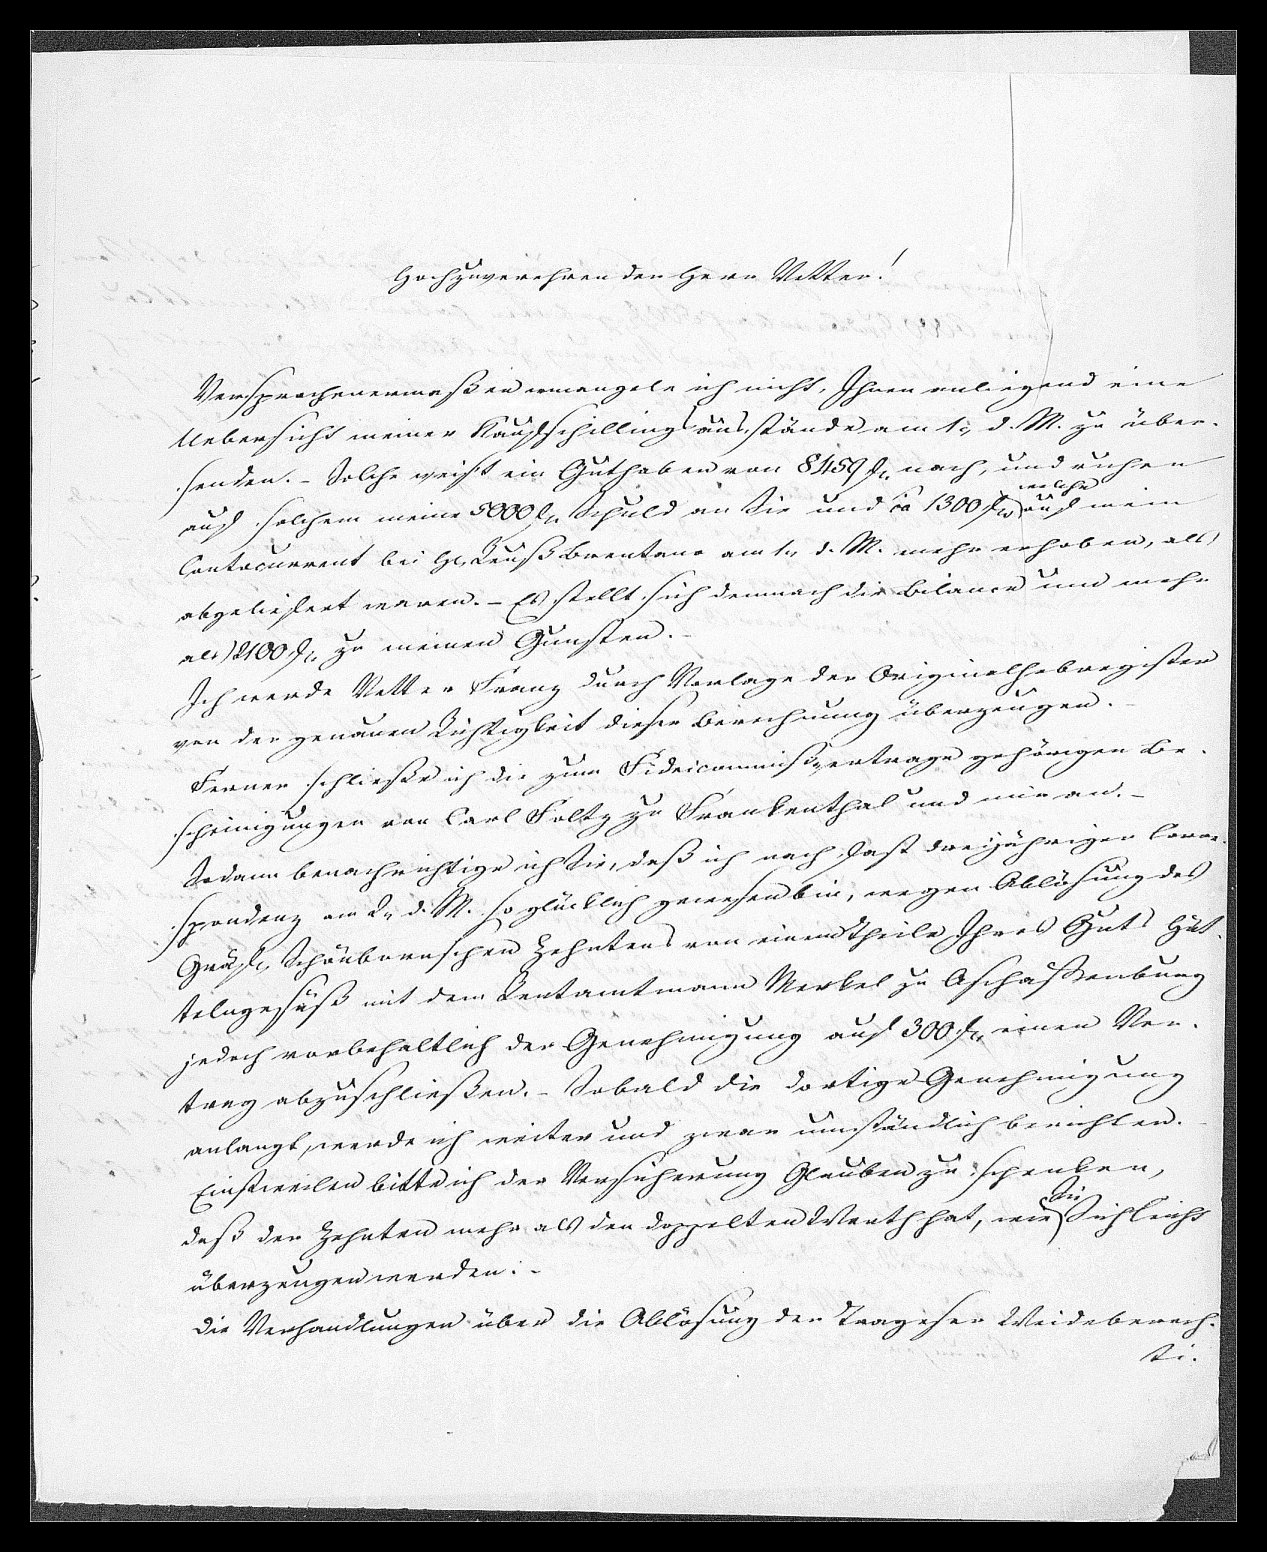 Hochzuverehrender Herr Vetter!
Versprochenermaßen ermangele ich nicht, Ihnen anliegend eine
Uebersicht meiner Kaufschillingsausstände am 1n d. M. zu über-
senden. – Solche weist ein Guthaben von 8459 f. nach, und ruhen
welche
auf solchem meine 5000 f. Schuld an Sie und ca 1300 f. auf mein
Contocurrent bei H. Leuß Brentano am 1n d. M. mehr erhoben, als
abgeliefert waren. – Es stellt sich demnach die Bilance um mehr
als 2100 f. zu meinen Gunsten. –
Ich werde Vetter Franz durch Vorlage der Originalhebregister
von der genauen Richtigkeit dieser Berechnung überzeugen. –
Ferner schließe ich die zum Fideicommißvertrage gehörigen Be-
scheinigungen von Carl Foltz zu Frankenthal und mir an. –
Sodann benachrichtige ich Sie, daß ich nach fast dreijähriger Corre-
spondenz am 2n d. M. so glücklich gewesen bin, wegen Ablösung des
Gräfl. Schönbornschen Zehntens von einem Theile Ihres Guts Hüt-
telngesäß mit dem Rentamtmann Merkel zu Aschaffenburg
jedoch vorbehaltlich der Genehmigung auf 300 f. einen Ver-
trag abzuschließen. – Sobald die dortige Genehmigung
anlangt, werde ich weiter und zwar umständlich berichten. –
Einstweilen bitte ich der Versicherung Glauben zu schenken,
Sie
daß der Zehnten mehr als den doppelten Werth hat, wie Sich leicht
überzeugen werden. –
Die Verhandlungen über die Ablösung der Trageser Weideberech-
ti-